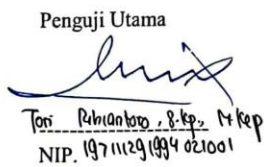 Penguji Utama
Tori Rihiantoro, S.Kp., M.Kep
NIP. 197111291994021001